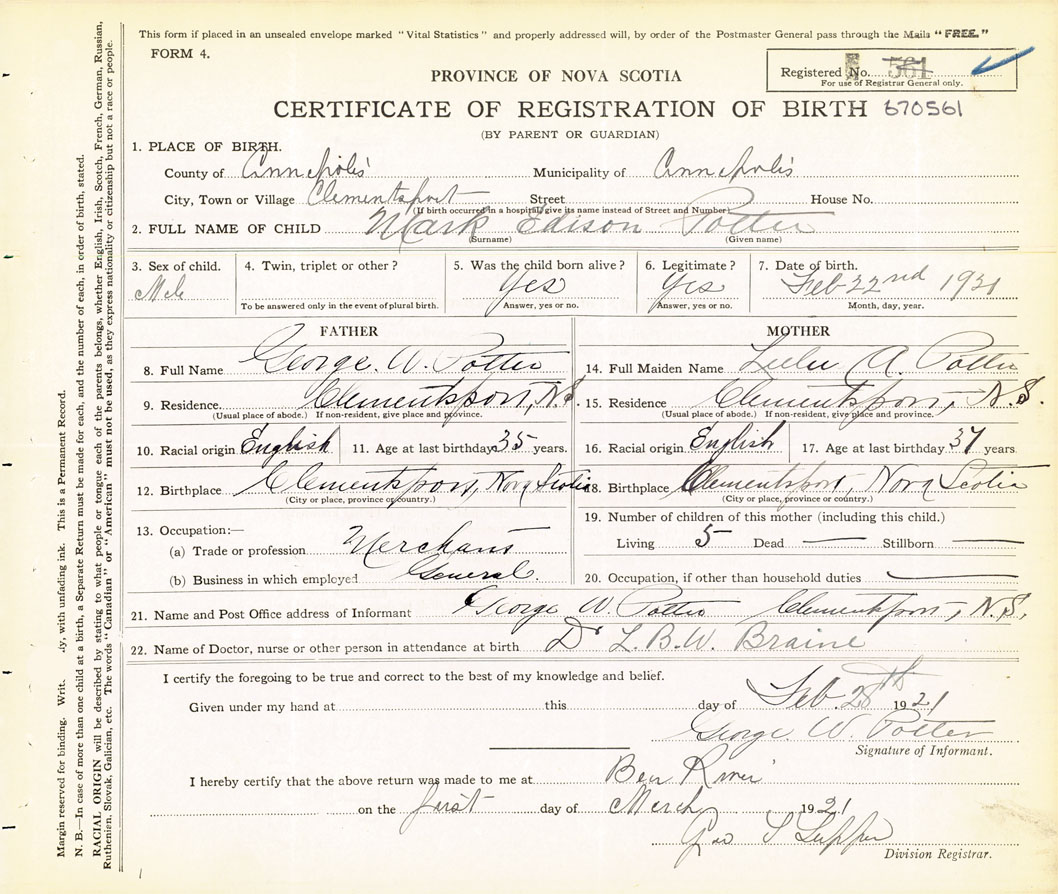 This form if placed in an unsealed envelope marked "Vital Statistics" and properly addressed will, by order of the Postmaster General pass through the Mails "FREE."
FORM 4.
Registered No. 561
For use of Registrar General only.
PROVINCE OF NOVA SCOTIA
CERTIFICATE OF REGISTRATION OF BIRTH 670561
(BY PARENT OR GUARDIAN)
1. PLACE OF BIRTH.
County of Annapolis Municipality of Annapolis
City, Town or Village Clementsport Street House No.
(If birth occurred in a hospital, give its name instead of Street and Number)
2. FULL NAME OF CHILD Mark Edison Potter
(Surname) (Given name)
3. Sex of child. 4. Twin, triplet or other? 5. Was the child born alive? 6. Legitimate? 7. Date of birth.
Male Yes Yes Feb 22nd 1921
To be answered only in the event of plural birth. Answer, yes or no. Answer, yes or no. Month, day, year.
FATHER MOTHER
8. Full Name George. W. Potter 14. Full Maiden Name A. Potter
9. Residence Clementsport, N.S. 15. Residence Clementsport, N.S.
(Usual place of abode.) If non-resident, give place and province. (Usual place of abode.) If non-resident, give place and province.
10. Racial origin English 11. Age at last birthday 35 years. 16. Racial origin English 17. Age at last birthday 37 years
12. Birthplace Clementsport, Nova Scotia 18. Birthplace Clementsport, Nova Scotia
(City or place, province or country.) (City or place, province or country.)
13. Occupation:—
(a) Trade or profession Merchant
(b) Business in which employed General.
19. Number of children of this mother (including this child.)
Living 5 Dead — Stillborn —
20. Occupation, if other than household duties —
21. Name and Post Office address of Informant George W. Potter Clementsport, N.S,
22. Name of Doctor, nurse or other person in attendance at birth Dr L.B.W. Braine
I certify the foregoing to be true and correct to the best of my knowledge and belief.
Given under my hand at this day of Feb. 28th 1921
George. W. Potter
Signature of Informant.
I hereby certify that the above return was made to me at Bear River
on the first day of March 1921
Geo
Division Registrar.
Margin reserved for binding. Writ. ly, with unfading ink. This is a Permanent Record.
N. B.—In case of more than one child at a birth, a Separate Return must be made for each, and the number of each, in order of birth, stated.
RACIAL ORIGIN will be described by stating to what people or tongue each of the parents belongs, whether English, Irish, Scotch, French, German, Russian,
Ruthenien, Slovak, Galician, etc. The words "Canadian" or "American" must not be used, as they express nationality or citizenship but not a race or people.